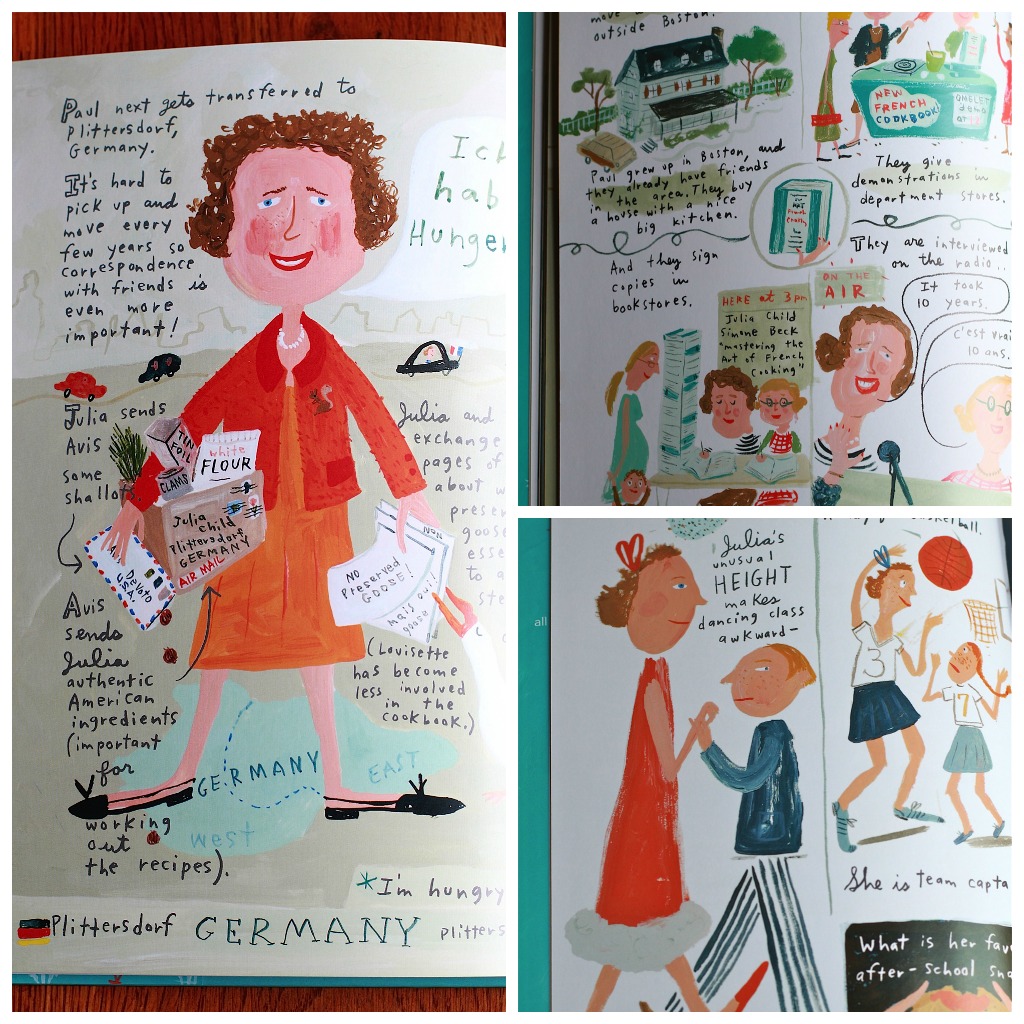 Paul next gets transferred to
Plittersdorf,
Germany.
It's hard to
pick up and
move every
few years so
correspondence
with friends is
even more
important!
Ich
hab
Hunger
Julia sends
Avis
some
shallots
TIN
FOIL
CLAMS
white
FLOUR
Julia
Child
Plittersdorf
GERMANY
AIR MAIL
DeVoto
USA
Avis
sends
Julia
authentic
American
ingredients
(important
for
working
out
the recipes).
Julia and
exchange
pages of
about w
preser
goose
esse
to a
ste
NO
Preserved
GOOSE!
Non
mais oui!
goose
(Louisette
has become
less involved
in the
cookbook.)
GERMANY
EAST
West
*I'm hungry
Plittersdorf GERMANY Plitters
move
outside Boston.
Paul grew up in Boston, and
they already have friends
in the area. They buy
a house with a nice
big kitchen.
NEW
FRENCH
COOKBOOK!
OMELET
demo
They give
demonstrations in
department stores.
And they sign
copies in
bookstores.
HERE at 3pm
Julia Child
Simone Beck
"mastering the
Art of French
Cooking"
They are interviewed
on the radio...
ON THE
AIR
It took
10 years.
C'est vrai
10 ans.
all
Julia's
unusual
HEIGHT
makes
dancing class
awkward—
basketball.
3
7
She is team capta
What is her fav
after-school sna